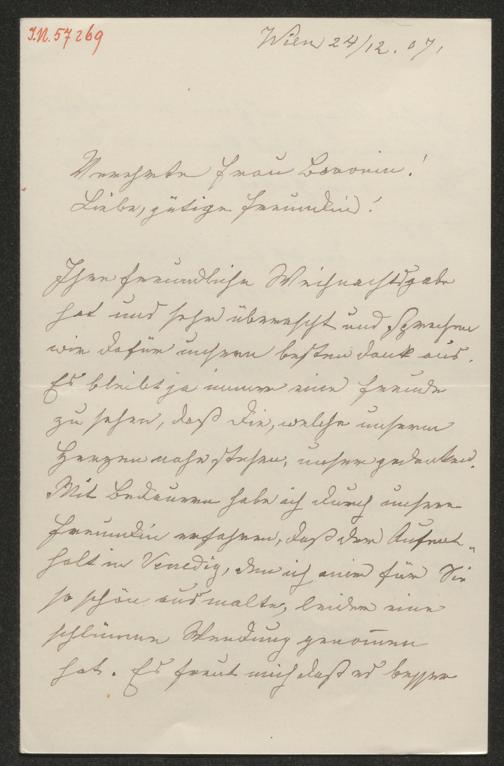 I.N. 57269
Wien 24/12. 07.
Verehrte Frau Baronin!
Liebe, gütige Freundin!
Ihre freundliche Weihnachtsgabe
hat uns sehr überrascht und sprechen
wir dafür unsern besten Dank aus.
Es bleibt ja immer eine Freude
zu sehen, daß die, welche unserm
Herzen nahe stehen, unser gedenken.
Mit Bedauern habe ich durch unsere
Freundin erfahren, daß der Aufent-
halt in Venedig, den ich mir für Sie
so schön ausmalte, leider eine
schlimme Wendung genommen
hat. Es freut mich daß es besser